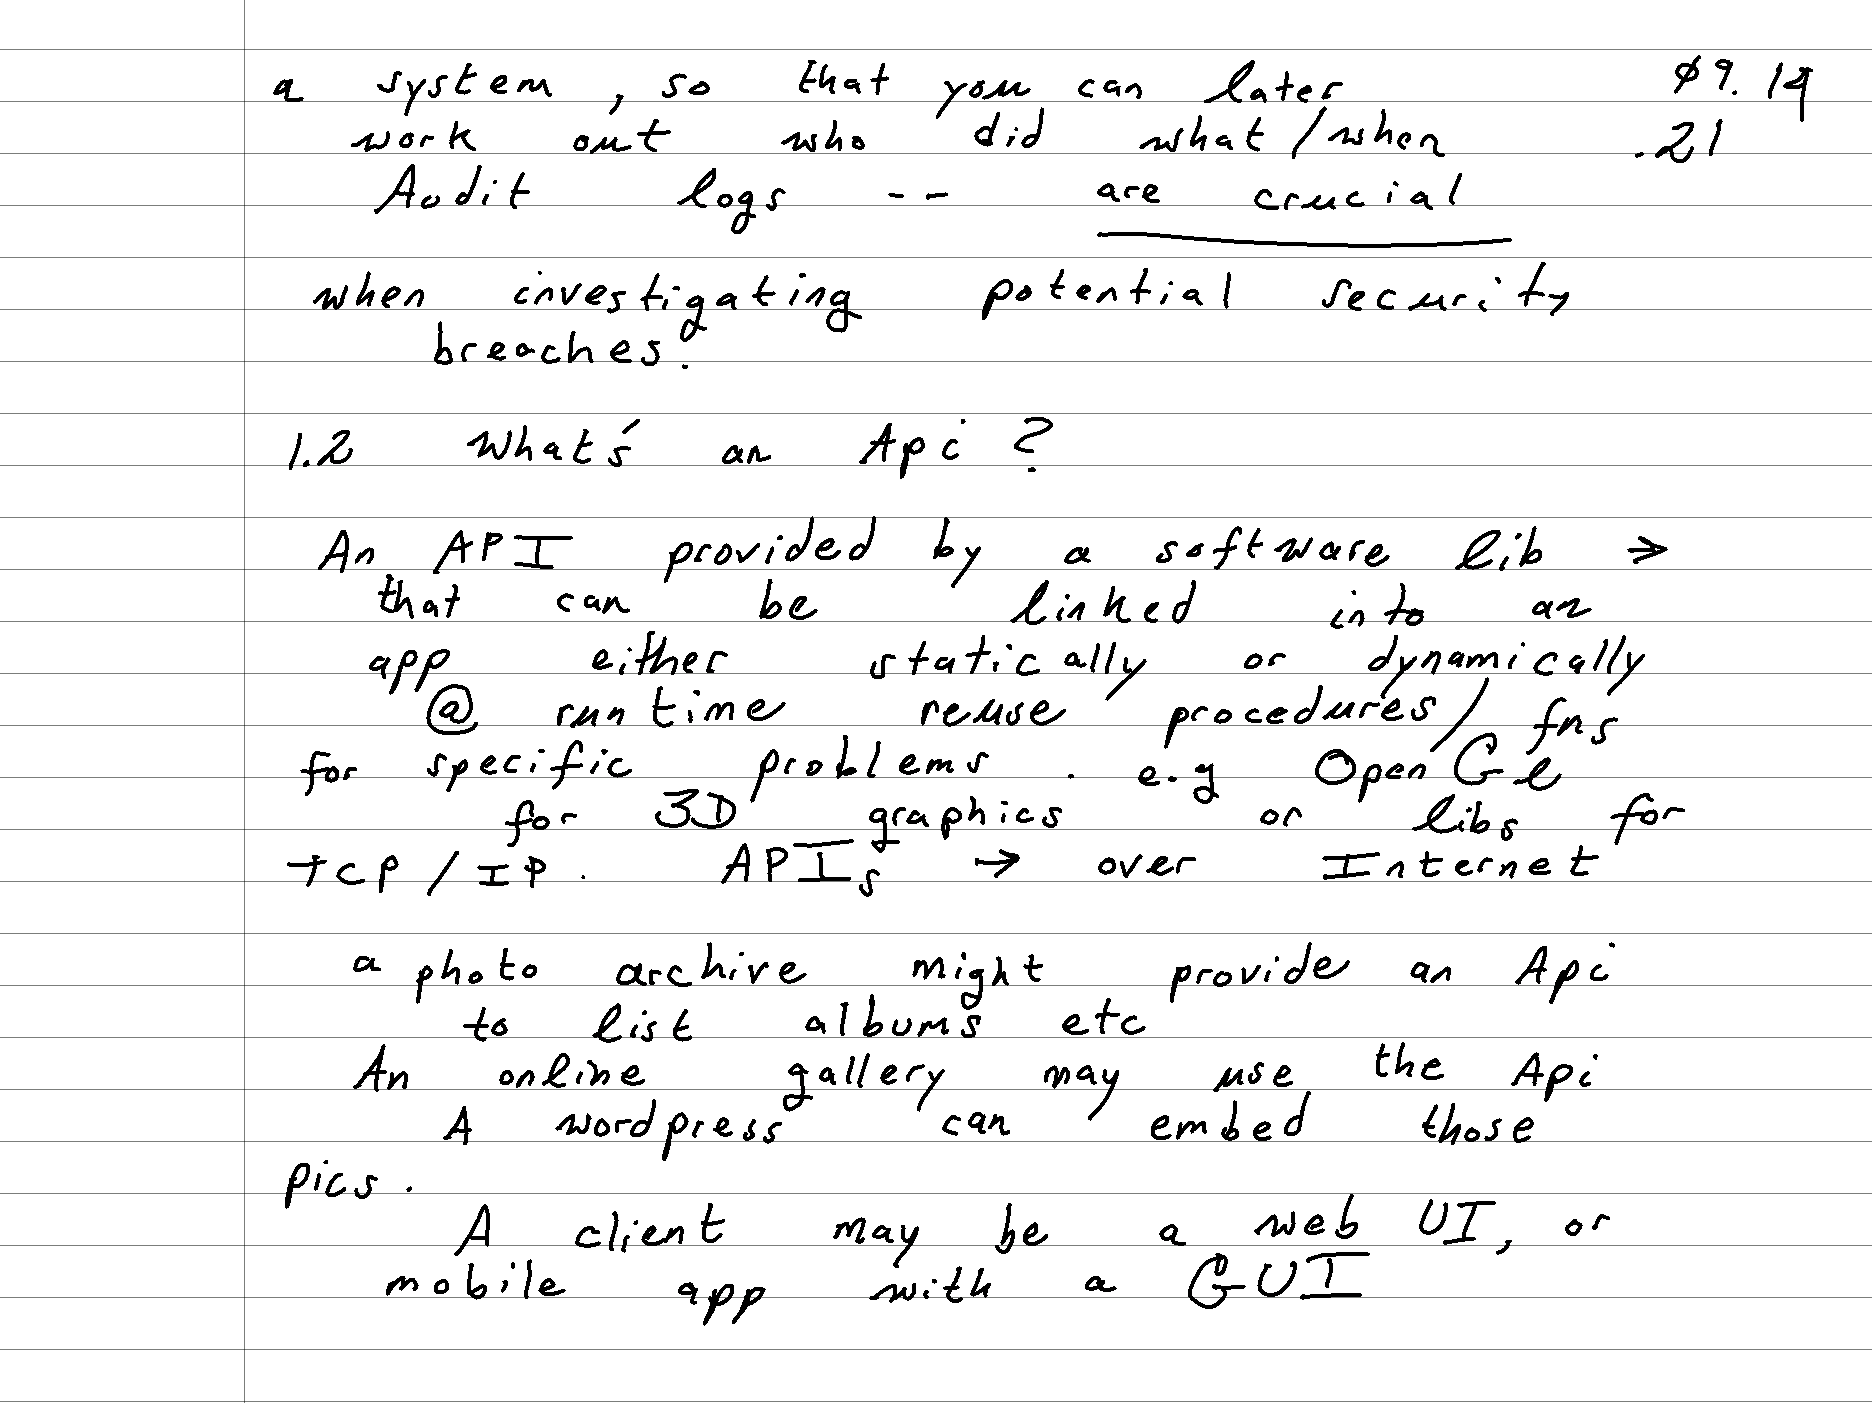 a system, so that you can later ø9.14
work out who did what/when .21
Audit logs -- are crucial
when investigating potential security
breaches.
1.2 What's an Api ?
An API provided by a software lib →
that can be linked into an
app either statically or dynamically
@ runtime reuse procedures/ fns
for specific problems . e.g OpenGl
for 3D graphics or libs for
TCP / IP . APIs → over Internet
a photo archive might provide an Api
to list albums etc
An online gallery may use the Api
A wordpress can embed those
pics .
A client may be a web UI, or
mobile app with a GUI